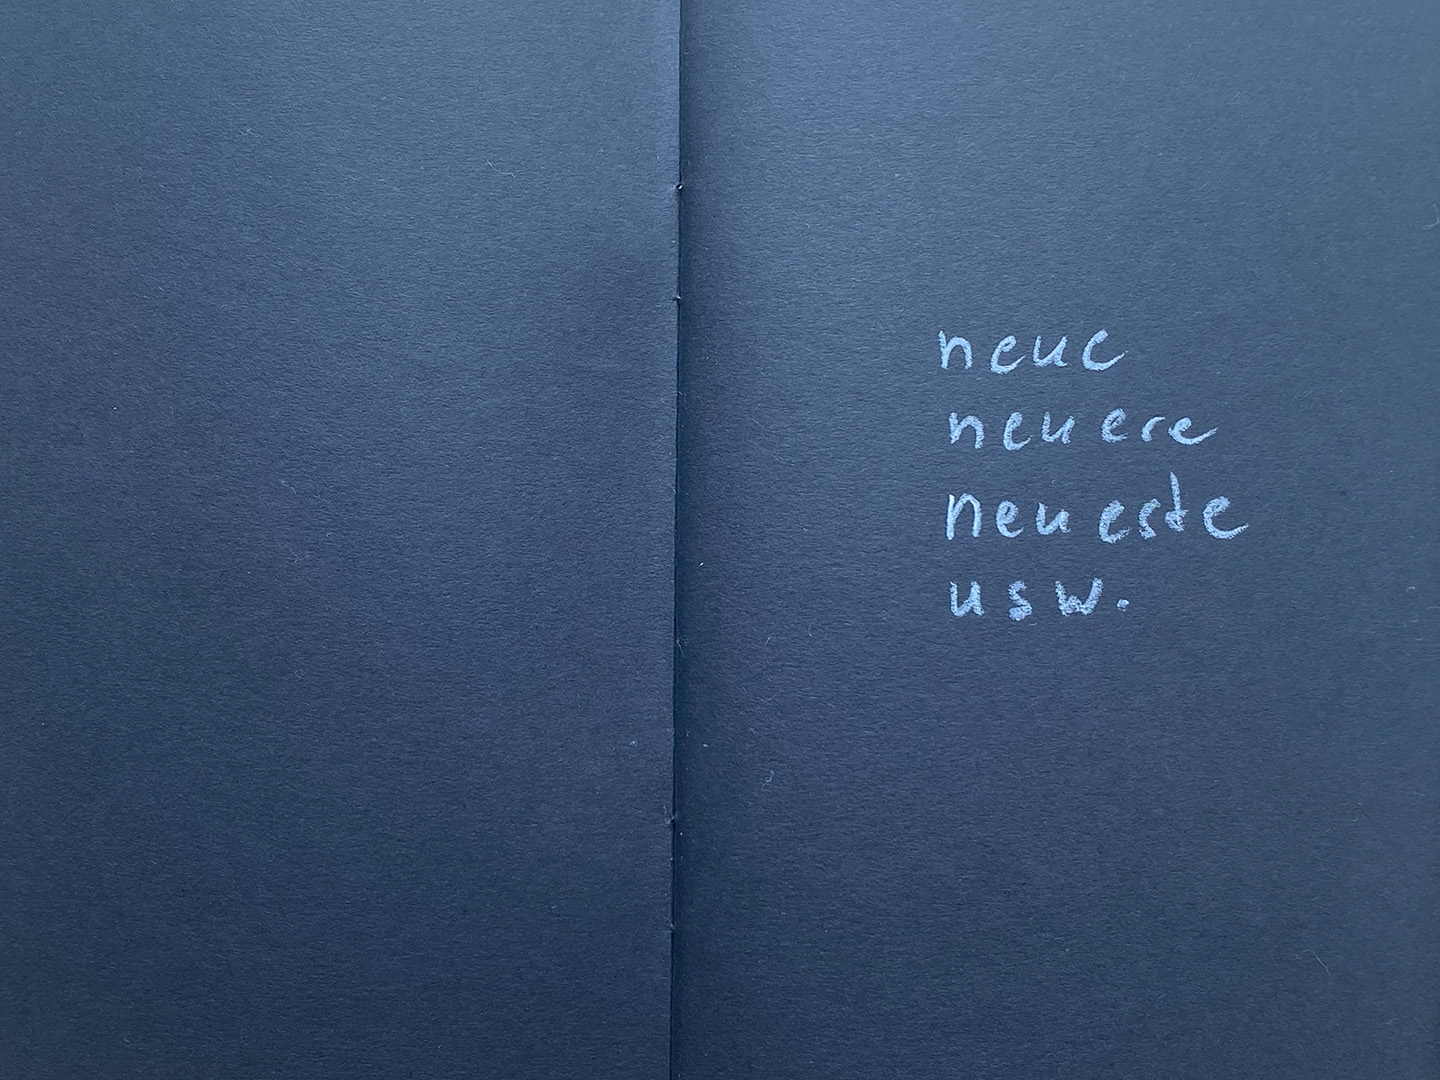 neue
neuere
neueste
usw.